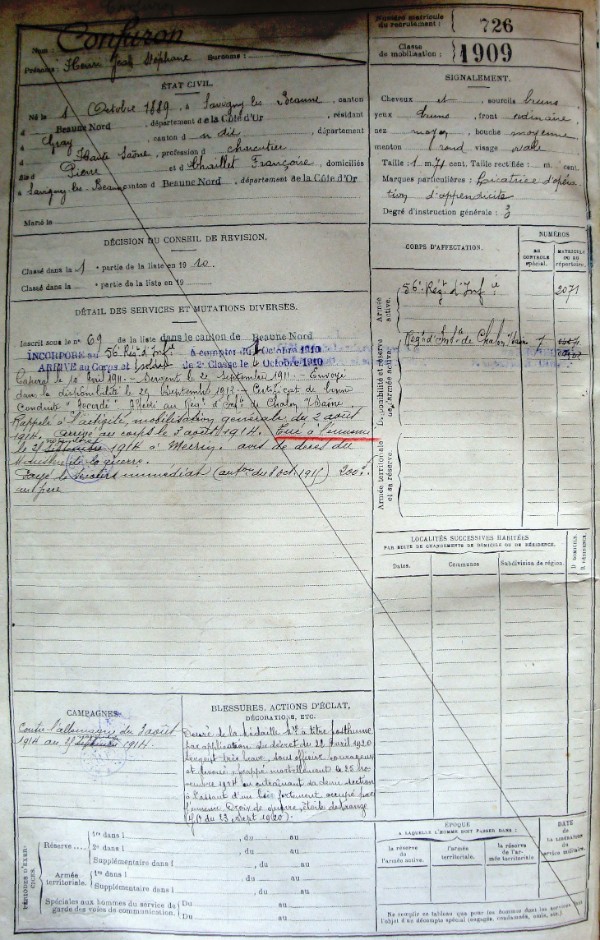 Nom : Confuron
Prénoms : Henri Jean Stéphane Surnoms :
Numéro matricule
de recrutement : 726
Classe
de mobilisation : 1909
ÉTAT CIVIL.
Né le 1 Octobre 1889, à Savigny les Beaune, canton
d Beaune Nord, département de la Côte d'Or, résidant
à Gray, canton d n dit, département
d Haute Saône, profession d charcutier
fils d Pierre et d Chaillet Françoise, domiciliés
à Savigny les Beaune canton d Beaune Nord, département de la Côte d'Or.
Marié le
SIGNALEMENT.
Cheveux et sourcils bruns
yeux bruns, front ordinaire
nez moyen, bouche moyenne
menton rond visage ovale
Taille : 1 m. 71 cent. Taille rectifiée : m. cent.
Marques particulières : Cicatrice d'opéra
tion d'appendicite
Degré d'instruction générale : 3
DÉCISION DU CONSEIL DE REVISION.
Classé dans la 1 e partie de la liste en 1910
Classé dans la e partie de la liste en 19
DÉTAIL DES SERVICES ET MUTATIONS DIVERSES.
Inscrit sous le n° 69 de la liste dans le canton de Beaune Nord
INCORPORÉ au 56e Rég. d'Inf. à compter du 1 Octobre 1910
ARRIVÉ au Corps et soldat de 2e Classe le Octobre 1910
Caporal le 10 1911 - Sergent le 24 Septembre 1911 - Envoyé
dans la disponibilité le 25 Septembre 1912 - Certificat de bonne
Conduite "Accordé" Affecté au Rég. d'Inf. de Chalon s/Saône
Rappelé à l'activité, mobilisation générale du 2 août
1914. Arrivé au corps le 3 août 1914. Tué à l'ennemi
le 1914 à Mécrin. avis de décès du
Ministre de la guerre.
Payé le secours immédiat 200f.
au père
CORPS D'AFFECTATION.
NUMÉROS
AU
CONTROLE
spécial.
MATRICULE
OU DU
répertoire.
Armée
active.
56e Rég. d'Infie 2071
Disponibilité et réserve
de l'armée active.
Rég. d'Infie de Chalon s/Saône
Armée territoriale
et sa réserve.
LOCALITÉS SUCCESSIVES HABITÉES
PAR SUITE DE CHANGEMENTS DE DOMICILE OU DE RÉSIDENCE.
Dates. Communes. Subdivision de région. D. DOMICILE. R. RÉSIDENCE.
CAMPAGNES.
Contre l'Allemagne du 3 août
1914 au 1914.
BLESSURES, ACTIONS D'ÉCLAT,
DÉCORATIONS, ETC.
Décoré de la médaille à titre posthume
par application du décret du 28 Avril 1920
Sergent très brave, sous officier courageux
et dévoué, frappé mortellement le 25 no
vembre 1914 en entraînant sa demi section
à l'assaut d'un bois fortement occupé par
l'ennemi Croix de guerre, étoile de bronze
23 Sept 1920).
PÉRIODES D'EXERCICES
Réserve
1re dans l , du au
2e dans l , du au
Supplémentaire dans l , du au
Armée
territoriale.
1re dans l , du au
Supplémentaire dans l , du au
Spéciales aux hommes du service de
garde des voies de communication.
Du au
Du au
ÉPOQUE
A LAQUELLE L'HOMME DOIT PASSER DANS :
la réserve
de l'armée active.
l'armée
territoriale.
la réserve
de l'ar-
mée territoriale
DATE
de
LA LIBÉRATION
du
service militaire.
Ne remplir ce tableau que pour les hommes dont les services font
l'objet d'un décompte spécial (engagés, condamnés, omis, etc.)